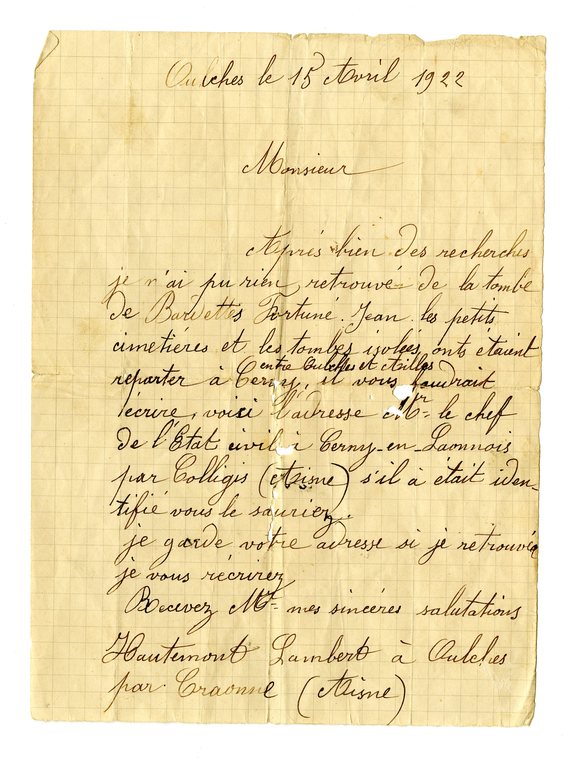 Oulches le 15 Avril 1922
Monsieur
Aprés bien des recherches
je n'ai pu rien retrouvé de la tombe
de Barvettes Fortuné. Jean. les petits
cimetiéres et les tombes isolées, onts étaient
entre Oulches et Ailles
reporter à Cerny, il vous faudrait
lécrire, voici l'adresse Mr= le chef
de l'Etat civil à Cerny-en-Laonnois
par Colligis (Aisne) s'il à était iden-
tifié vous le sauriez.
je garde votre adresse si je retrouvéz
je vous récrirez
Recevez Mr= mes sincéres salutations
Hautemont Lambert à Oulches
par Craonne (Aisne)